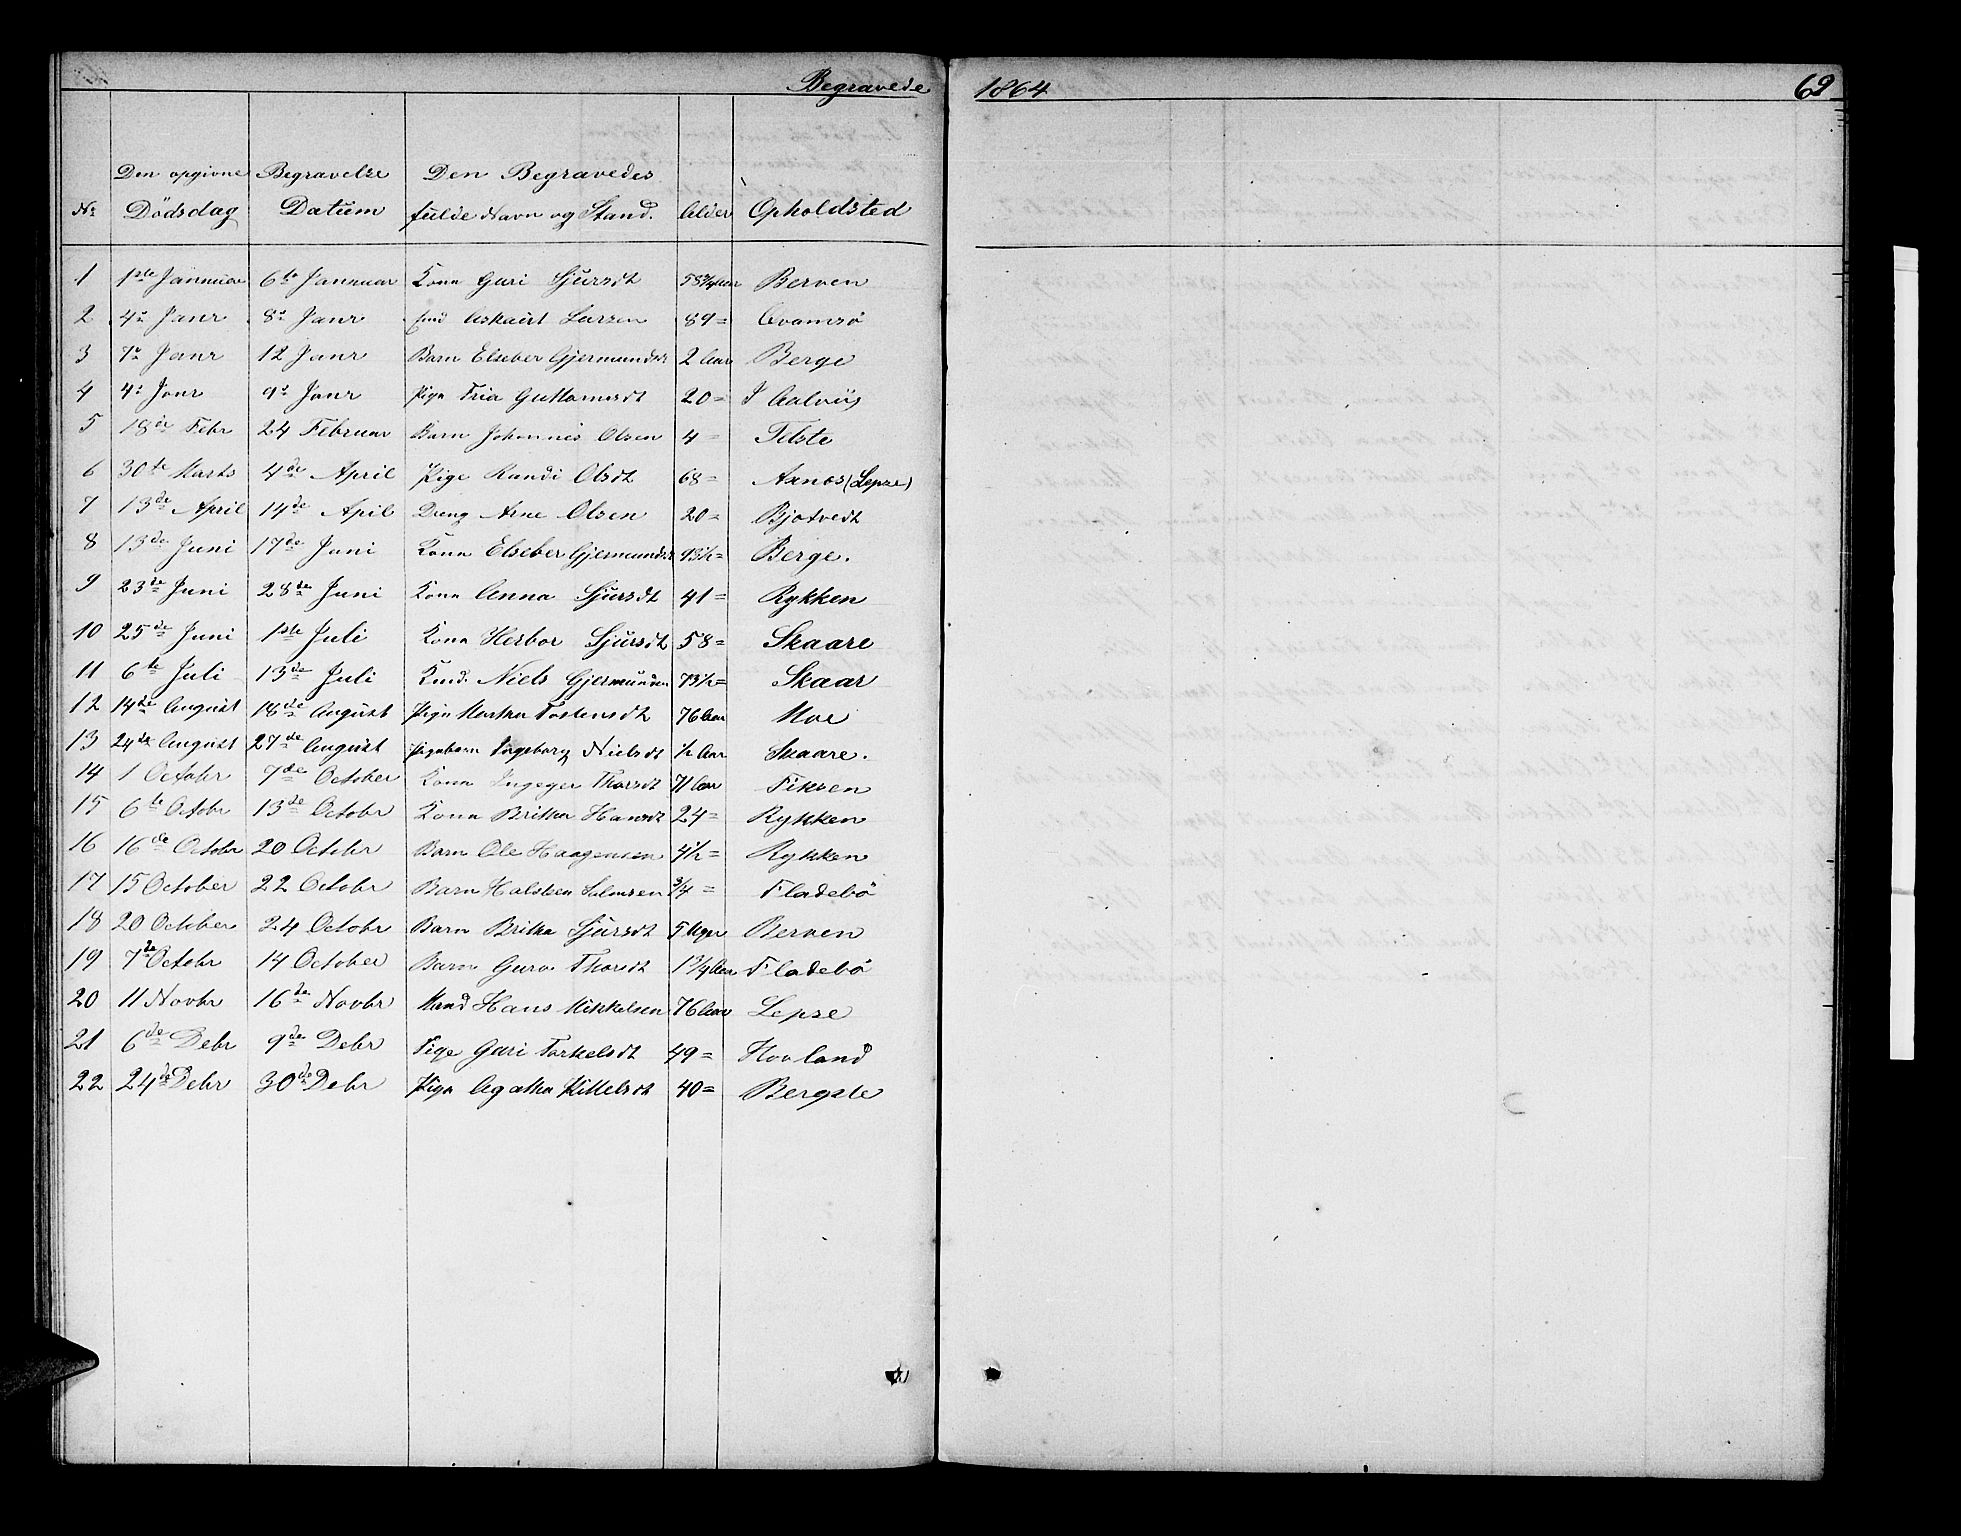 Begravede 1864 69
No Den opgivne Dödsdag Begravelse Datum Den Begravedes fulde Navn og Stand. Alder Opholdsted
1 1ste Januar 6te Januar Kona Guri Sjursdt 58 3/4 Aar Berven
2 4de Janr 8de Janr Askaut Larsen 89 = Qvamsö
3 7de Janr 12 Janr Barn Elseber Gjermundsdt 2 Aar Berge
4 4de Janr 9de Janr Pige Guttormsdt 20 = I Aalviig
5 18de Febr 24 Februar Barn Johannes Olsen 4 = Telste
6 30te Marts 4de April Pige Randi Olsdt 68 = Axnes (Lepse)
7 13de April 14de Apil Dreng Arne Olsen 20 = Bjotvedt
8 13de Juni 17de Juni Kona Elseber Gjermundsdt 93½ = Berge.
9 23de Juni 28de Juni Kona Anna Sjursdt 41 = Rykken
10 25de Juni 1ste Juli Kona Herbor Sjursdt 58 = Skaare
11 6te Juli 13de Juli Niels Gjermundsen 73½ = Skaar
12 14de August 18de August Pige Martha Tostensdt 76 Aar Moe
13 24de August 27de August Pigebarn Ingeborg Nielsdt ½ Aar Skaare.
14 1 Octobr 7de October Kona Ingeger Thorsdt 71 Aar Fiksen
15 6te Octobr 13de Octobr Kona Britha Hansdt 24 = Rykken
16 16de Octobr 20 Octobr Barn Ole Haagensen 4½ = Rykken
17 15 October 22 Octobr Barn Halsten Salmsen 3/4 = Fladebö
18 20 October 24 Octobr Barn Britha Sjursdt 5 Uger Berven
19 7de Octobr 14 October Barn Guro Thorsdt 1 3/4 Aar Fladebö
20 11 Novbr 16de Novbr Mand Hans Mikkelsen 76 Aar Lepse
21 6de Debr 9de Debr Pige Guri Torkelsdt 49 = Hovland
22 24de Debr 30de Debr Pige Agatha Kittelsdt 40 = Bergste